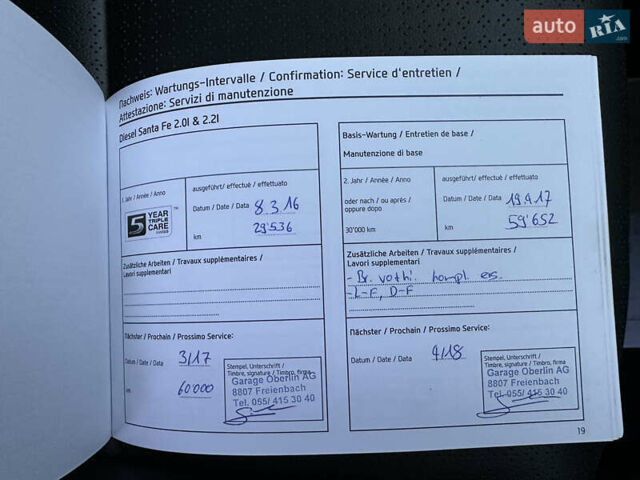 auto RIA.com
Nachweis: Wartungs-Intervalle / Confirmation: Service d'entretien /
Attestazione: Servizi di manutenzione
Diesel Santa Fe 2.0l & 2.2l
1. Jahr / Année / Anno
ausgeführt/ effectué / effettuato
Datum / Date / Data 8.3.16
5 YEAR TRIPLE CARE
km 29'536
Zusätzliche Arbeiten / Travaux supplémentaires /
Lavori supplementari
Nächster / Prochain / Prossimo Service:
Datum / Date / Data 3/17
km 60'000
Stempel, Unterschrift /
Timbre, signature / Timbro, firma
Garage Oberlin AG
8807 Freienbach
Tel. 055/ 415 30 40
Basis-Wartung / Entretien de base /
Manutenzione di base
2. Jahr / Année / Anno
ausgeführt/ effectué / effettuato
oder nach / ou après /
oppure dopo
Datum / Date / Data 19.4.17
30'000 km
km 59'652
Zusätzliche Arbeiten / Travaux supplémentaires /
Lavori supplementari
- Br. kompl.
- L-F, D-F
Nächster / Prochain / Prossimo Service:
Datum / Date / Data 4/18
Stempel, Unterschrift /
Timbre, signature / Timbro, firma
Garage Oberlin AG
8807 Freienbach
Tel. 055/ 415 30 40
19